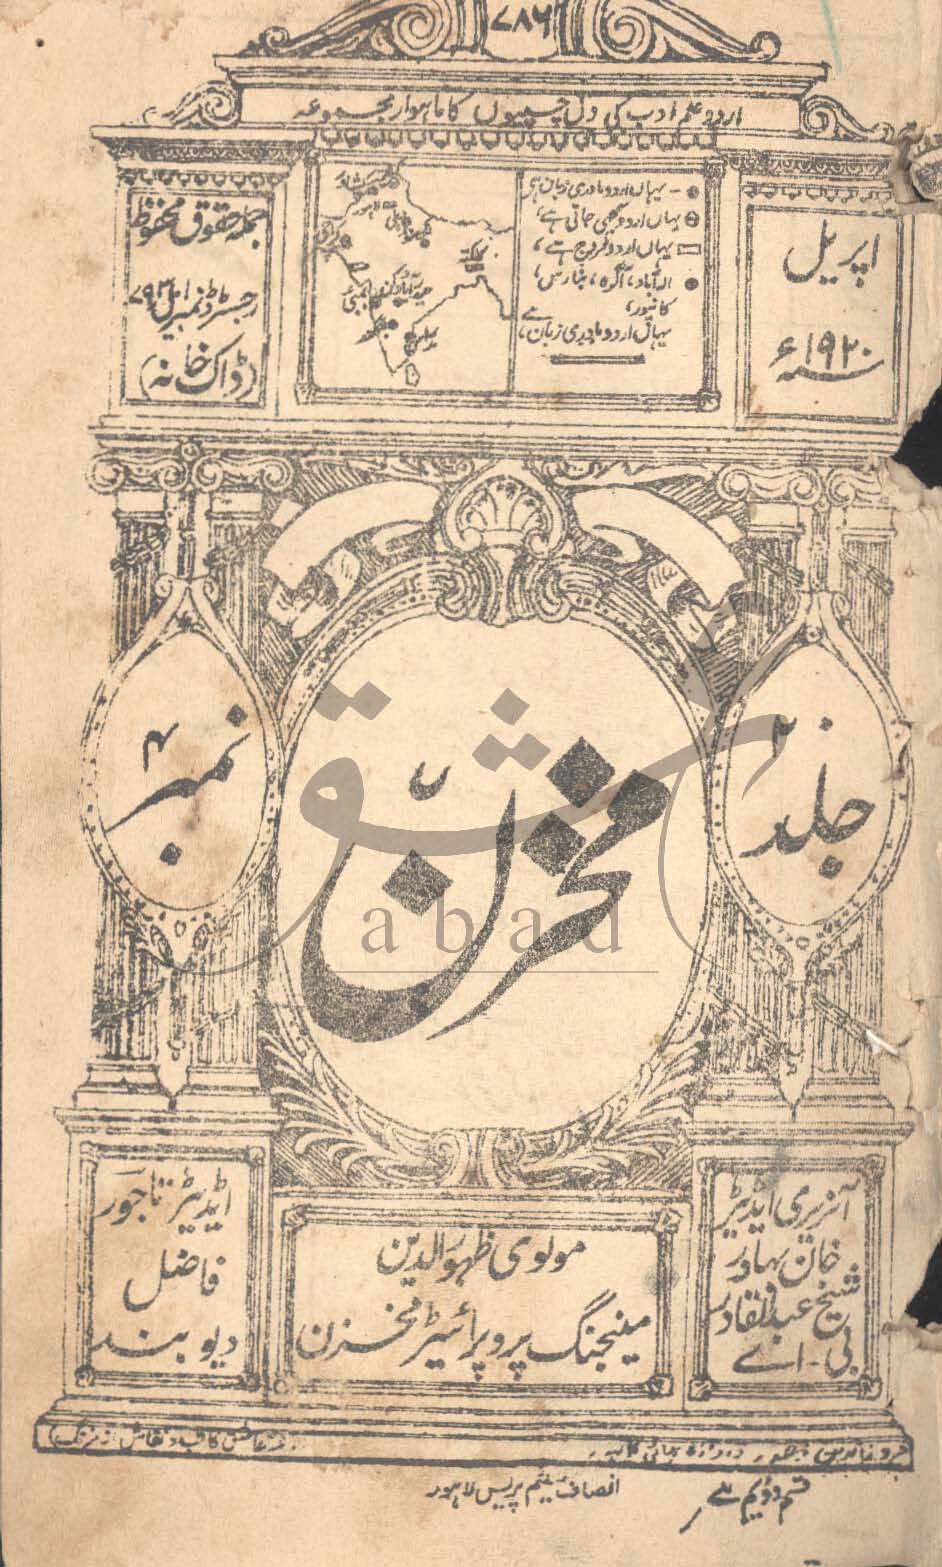 ۷۸۶
اردو علم ادب کی دلچسپیوں کا ماہوار مجموعہ
اپریل
سنہ ۱۹۲۰ء
یہاں اردو مادری زبان ہی
یہاں اردو سمجھی جاتی ہے،
یہاں اردو مروج ہے،
الہ آباد، آگرہ، بنارس،
کانپور،
یہاں اردو مادری زبان، ہے
لاہور
دہلی
کلکتہ
بمبئی
جملہ حقوق محفوظ
رجسٹرڈ نمبر ایل
(ڈاک خانہ)
جلد
۲
مخزن
نمبر
۴
آنریری ایڈیٹر
خان بہادر
شیخ عبدالقادر
بی۔اے
مولوی ظہور الدین
مینیجنگ پروپرائیٹر مخزن
ایڈیٹر تاجور
فاضل
دیوبند
قسم دوئم
انصاف سٹیم پریس لاہور
عشق
abad